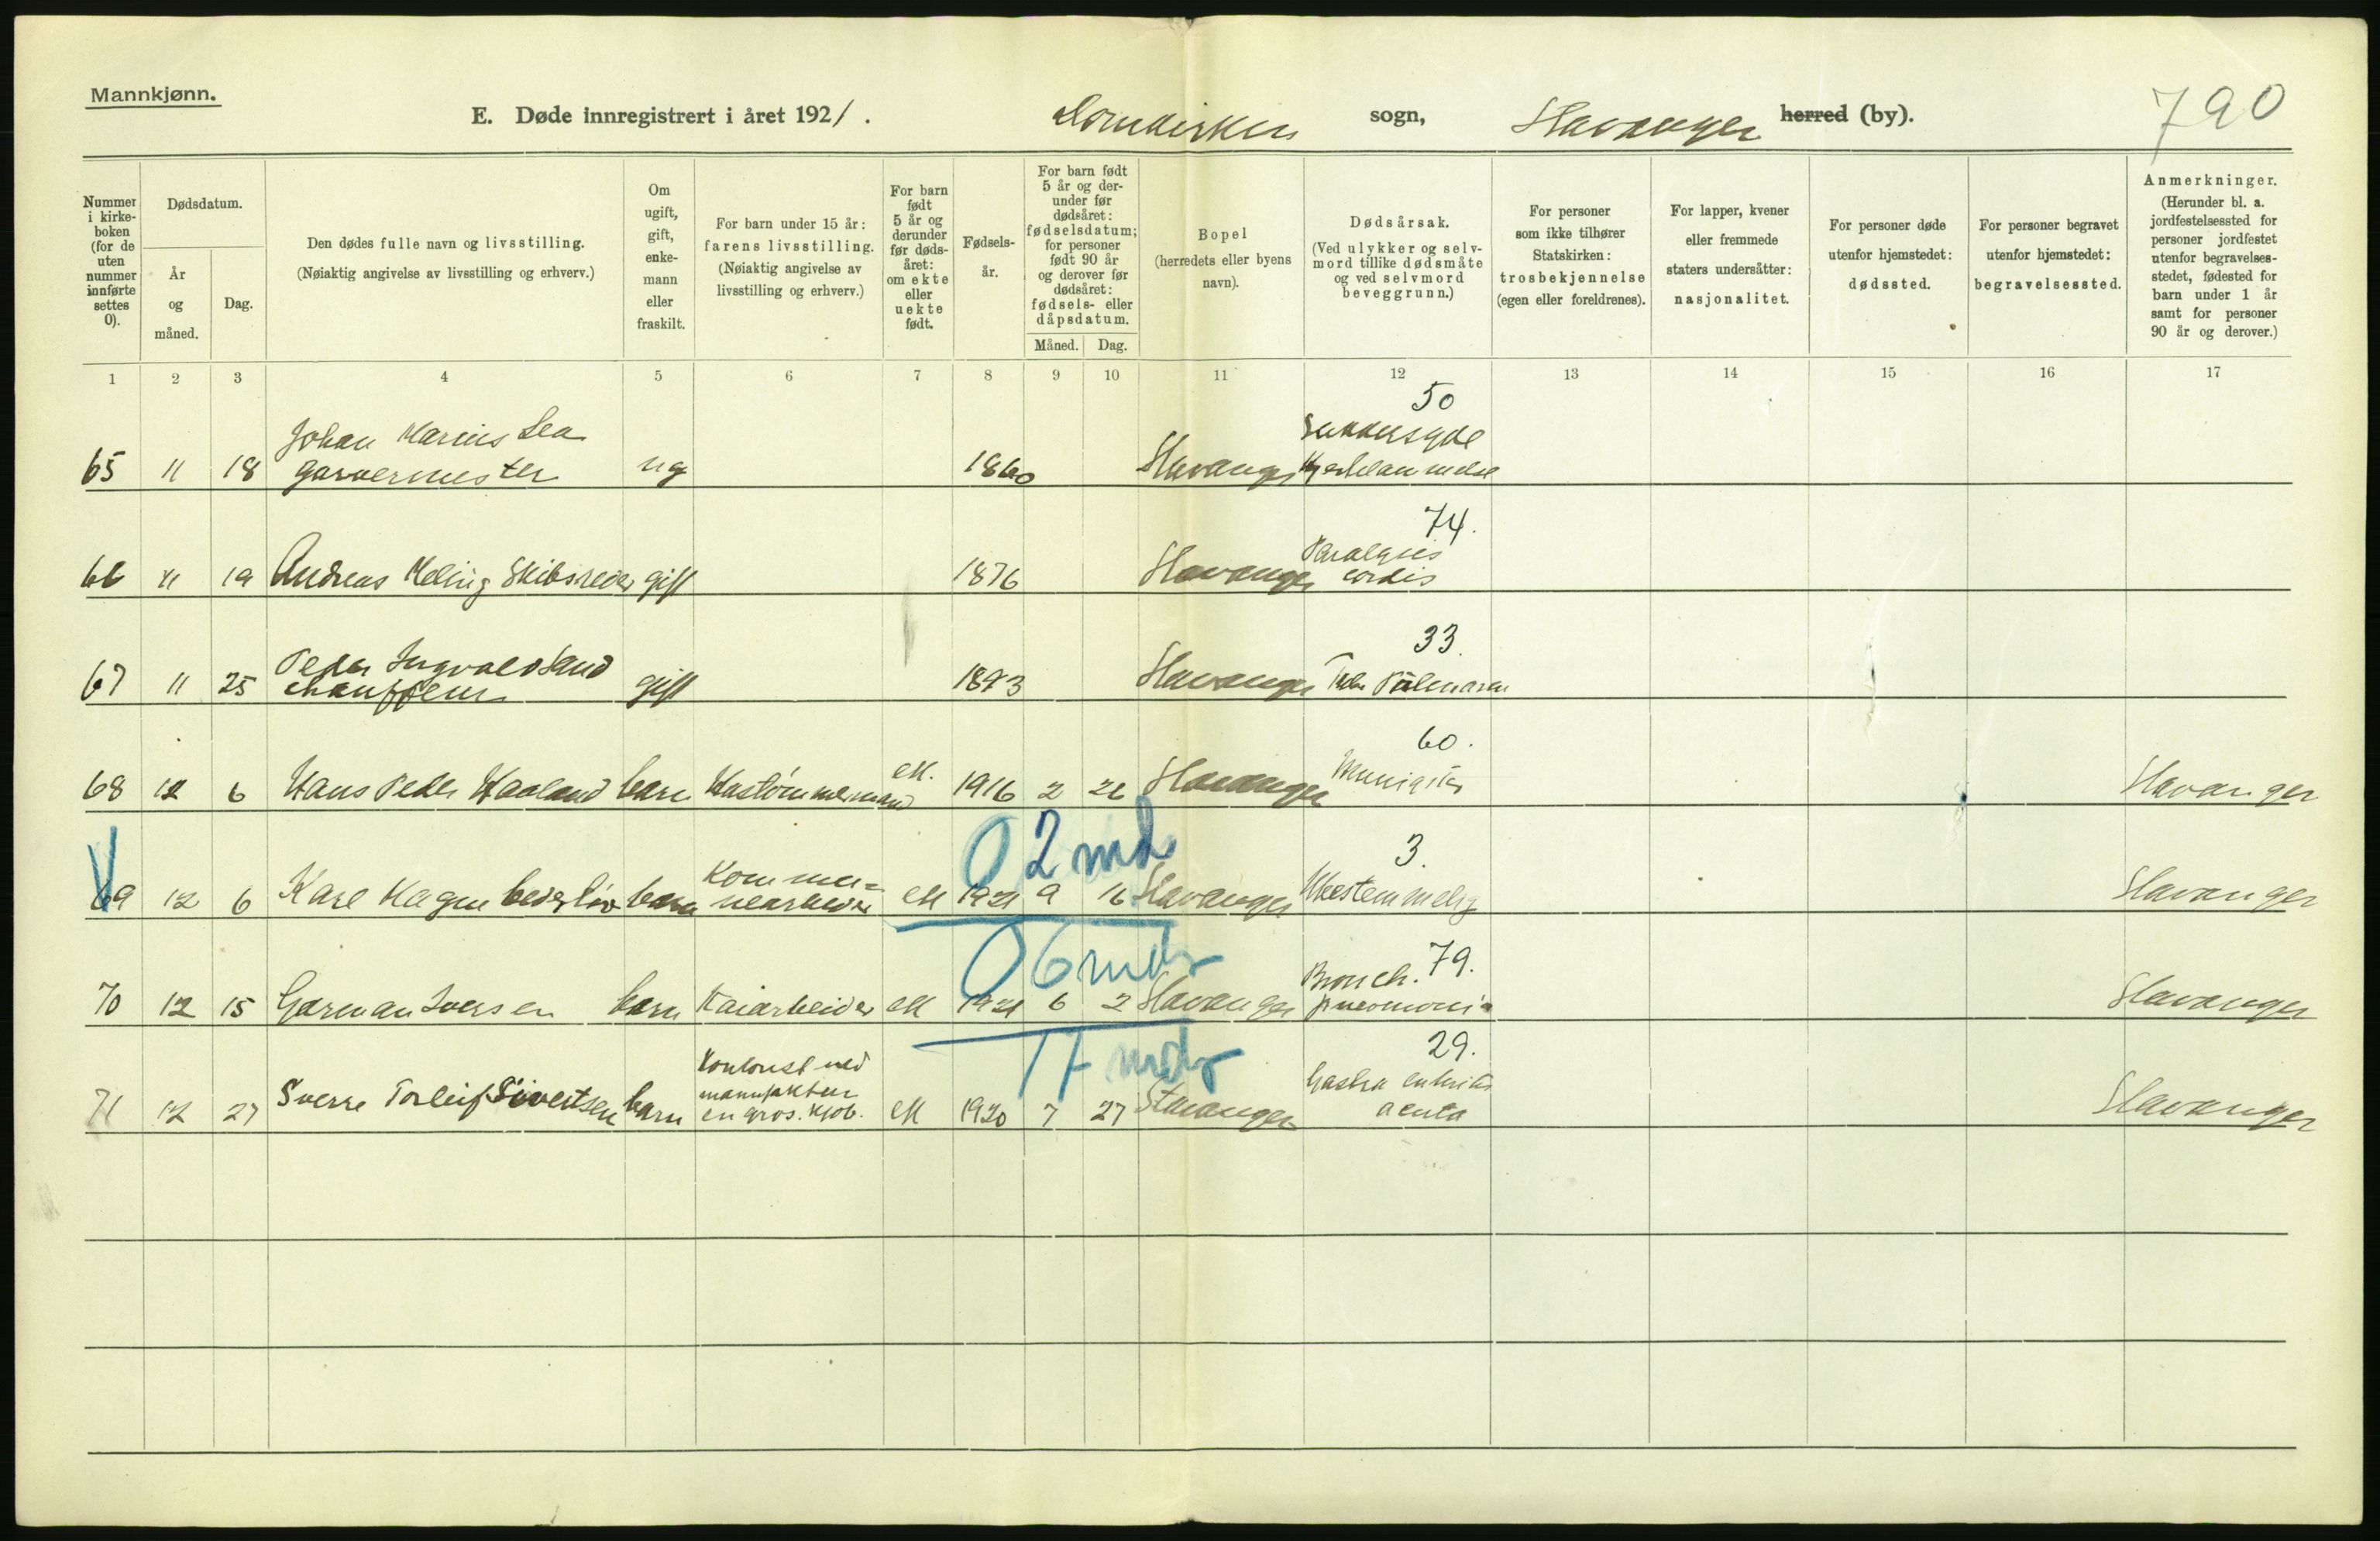 Mannkjønn.
E. Døde innregistrert i året 1921. Domkirken sogn, Stavanger herred (by). 790
Nummer i kirke-boken (for de uten nummer innførte settes 0).
Dødsdatum.
År og måned.
Dag.
Den dødes fulle navn og livsstilling.
(Nøiaktig angivelse av livsstilling og erhverv.)
Om ugift, gift, enke-mann eller fraskilt.
For barn under 15 år: farens livsstilling.
(Nøiaktig angivelse av livsstilling og erhverv.)
For barn født 5 år og derunder før døds-året: om ekte eller uekte født.
Fødsels-år.
For barn født 5 år og der-under før dødsåret: fødselsdatum; for personer født 90 år og derover før dødsåret: fødsels- eller dåpsdatum.
Måned. Dag.
Bopel
(herredets eller byens navn).
Dødsårsak.
(Ved ulykker og selv-mord tillike dødsmåte og ved selvmord beveggrunn.)
For personer som ikke tilhører Statskirken: trosbekjennelse (egen eller foreldrenes).
For lapper, kvener eller fremmede staters undersåtter: nasjonalitet.
For personer døde utenfor hjemstedet: dødssted.
For personer begravet utenfor hjemstedet: begravelsessted.
Anmerkninger.
(Herunder bl. a. jordfestelsessted for personer jordfestet utenfor begravelses-stedet, fødested for barn under 1 år samt for personer 90 år og derover.)
1 2 3 4 5 6 7 8 9 10 11 12 13 14 15 16 17
50
Johan Marius Lea Sukkersyke
65 11 18 garvermester ug 1860 Stavanger Hjertelammelse
74.
Paralysis
66 11 19 Andreas Meling Skibsreder gift 1876 Stavanger cordis
33.
Peder Ingvald Sand
67 11 25 chauffeur gift 1893 Stavanger Tub. Pulmonum
60.
68 12 6 Hans Peder Haaland barn Hustømmermand ek. 1916 2 22 Stavanger Meningitis Stavanger
0 2 md
3.
Kommu=
69 12 6 Kåre Hagen barn nearbeider ek 1921 9 16 Stavanger Ubestemmelig Stavanger
0 6 mdr
Bronch. 79.
70 12 15 Garman Iversen barn Kaiarbeider ek 1921 6 2 Stavanger pneumonia Stavanger
17 mdr
29.
Kontorist ved
manufaktur Gastro enteritis
71 12 27 Sverre Torleif Sivertsen barn en gros. kjøb. ek 1920 7 27 Stavanger acuta Stavanger